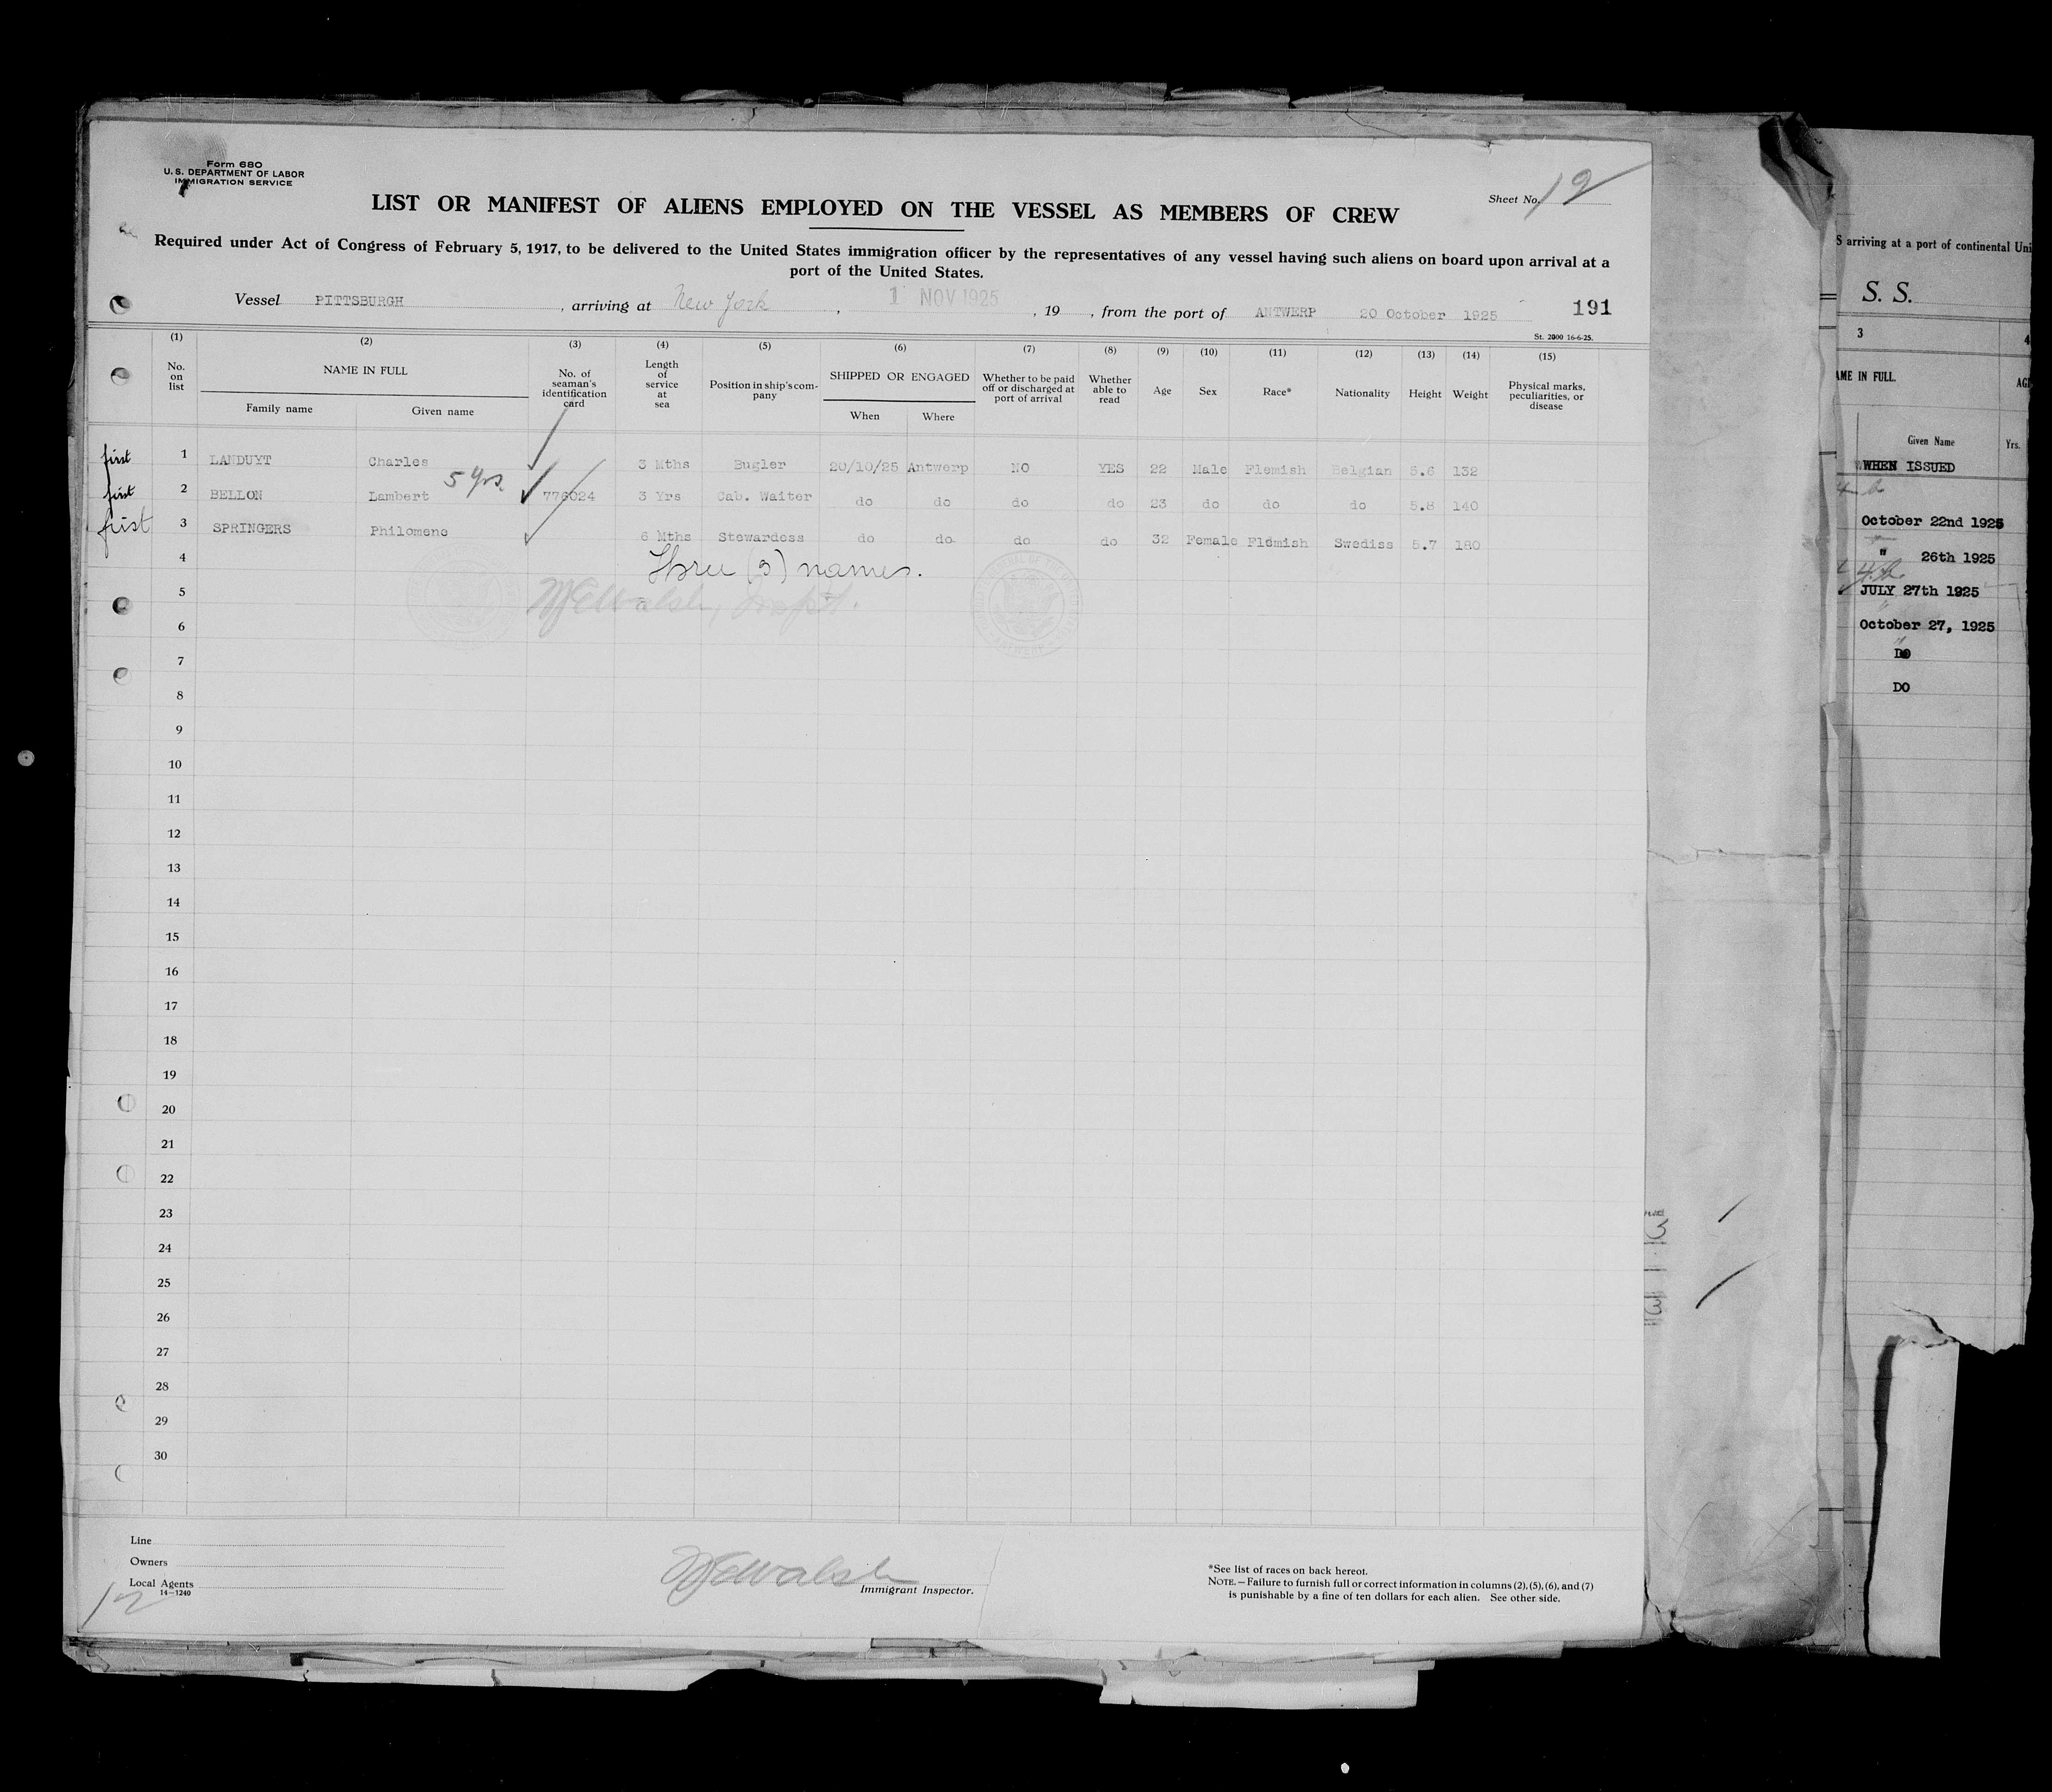 Form 680
U. S. DEPARTMENT OF LABOR
IMMIGRATION SERVICE
Sheet No. 12
LIST OR MANIFEST OF ALIENS EMPLOYED ON THE VESSEL AS MEMBERS OF CREW
Required under Act of Congress of February 5, 1917, to be delivered to the United States immigration officer by the representatives of any vessel having such aliens on board upon arrival at a
port of the United States.
Vessel PITTSBURGH , arriving at New York , 1 NOV 1925 , 19 , from the port of ANTWERP 20 October 1925 191
St. 2000 16-6-25.
(1) (2) (3) (4) (5) (6) (7) (8) (9) (10) (11) (12) (13) (14) (15)
No. on list NAME IN FULL Family name Given name No. of seaman's identification card Length of service at sea Position in ship's company SHIPPED OR ENGAGED When Where Whether to be paid off or discharged at port of arrival Whether able to read Age Sex Race* Nationality Height Weight Physical marks, peculiarities, or disease
first 1 LANDUYT Charles 3 Mths Bugler 20/10/25 Antwerp NO YES 22 Male Flemish Belgian 5.6 132
first 2 BELLON Lambert 5 yrs. 776024 3 Yrs Cab. Waiter do do do do 23 do do do 5.8 140
first 3 SPRINGERS Philomene 6 Mths Stewardess do do do do 32 Female Flemish Swediss 5.7 180
4 Three (3) names.
5 Walsh, Inspt.
6
7
8
9
10
11
12
13
14
15
16
17
18
19
20
21
22
23
24
25
26
27
28
29
30
Line
Owners
Local Agents
14—1240
12
Walsh
Immigrant Inspector.
*See list of races on back hereof.
NOTE.—Failure to furnish full or correct information in columns (2), (5), (6), and (7)
is punishable by a fine of ten dollars for each alien. See other side.
S arriving at a port of continental Uni
S. S.
3 4
AME IN FULL. AG
Given Name Yrs.
WHEN ISSUED
October 22nd 1925
" 26th 1925
JULY 27th 1925
October 27, 1925
DO
DO